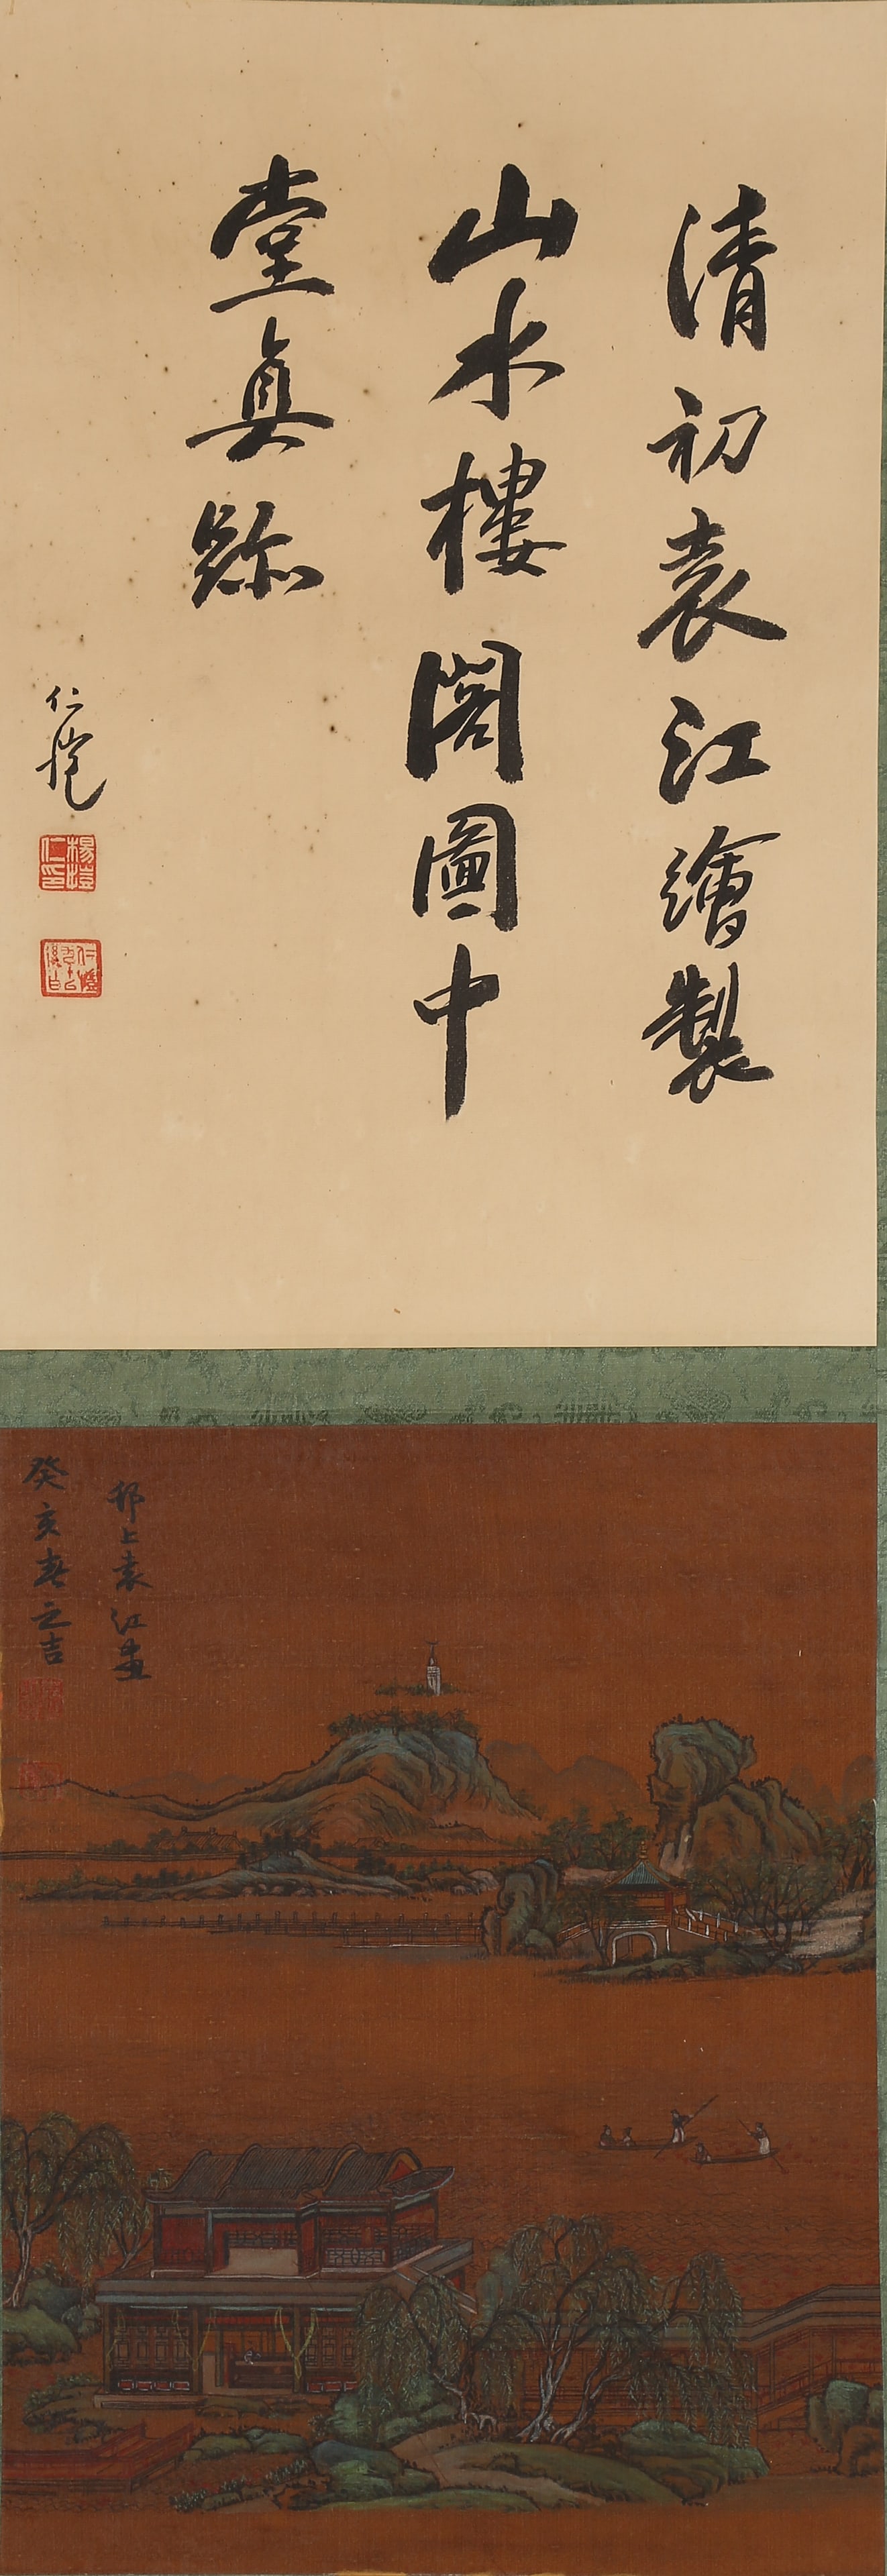 清初袁江繪製
山水樓閣圖中
堂真跡
仁愷
楊仁愷印
邗上袁江畫
癸亥春之吉